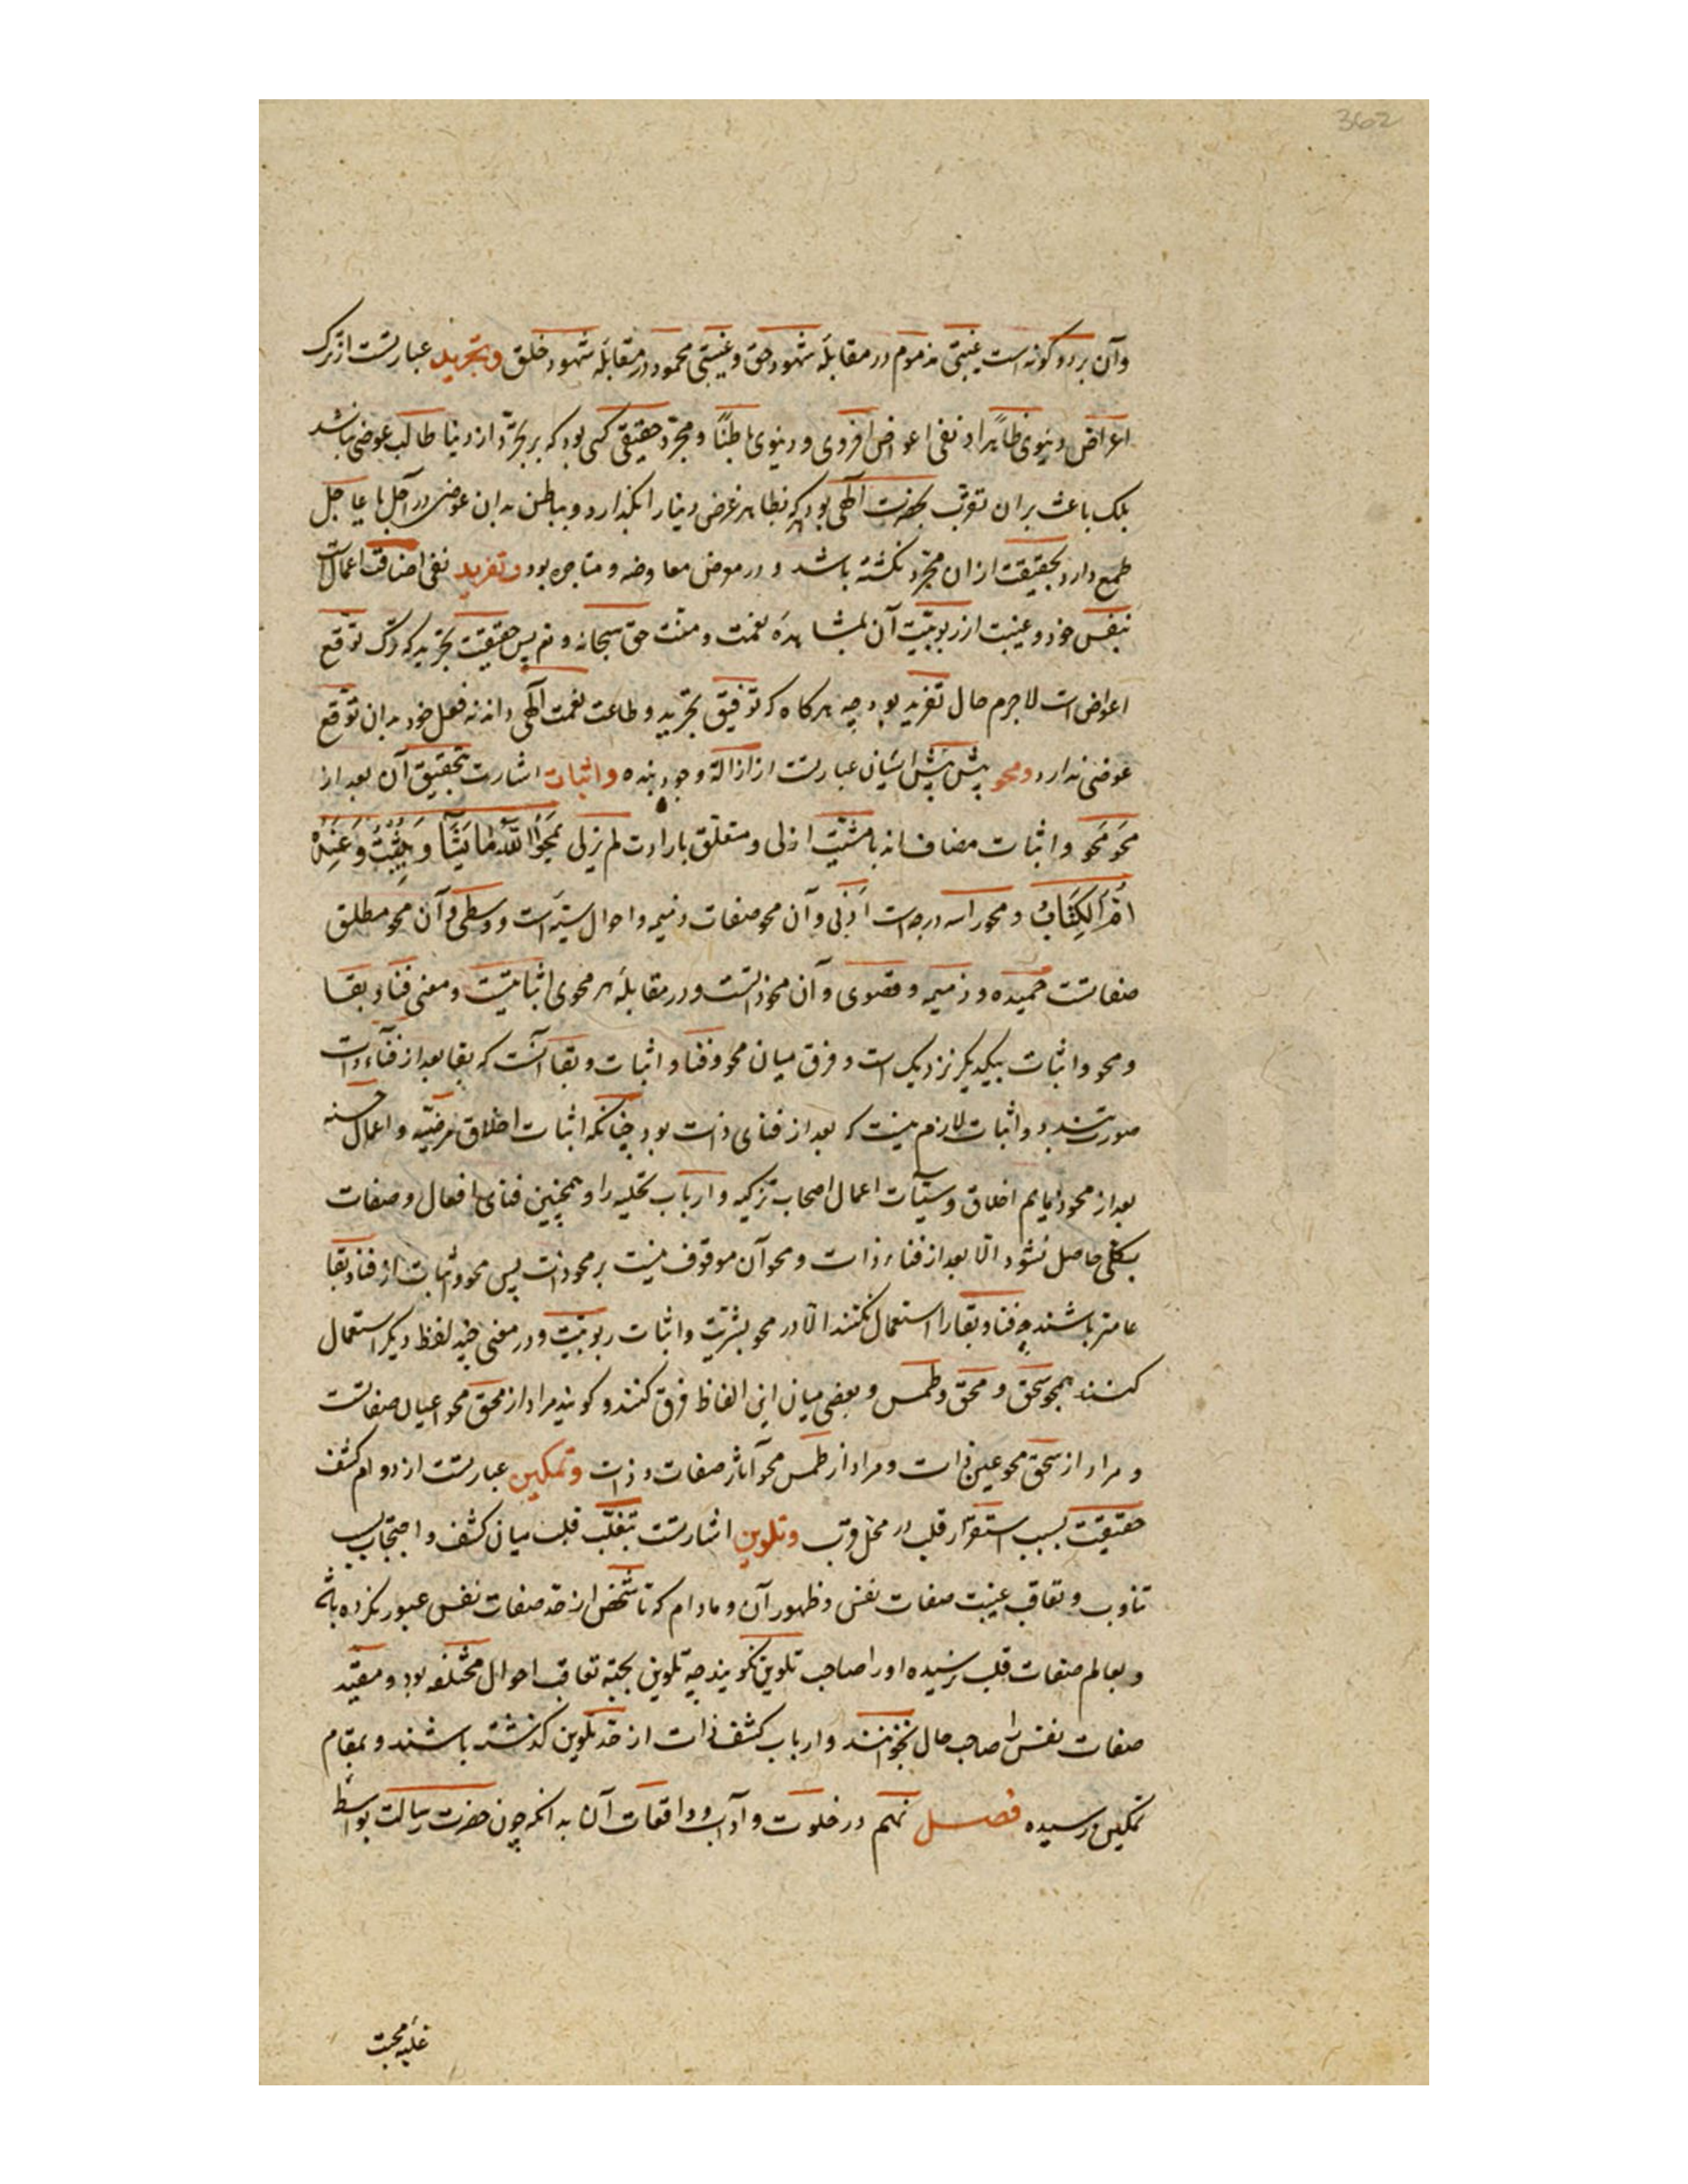 362
وآن بر دو کونه است غیبتی مذموم در مقابلهٔ شهود حق و غیبتی محمود در مقابلهٔ شهود خلق وتجرید عبارتست از ترک
اعراض دنیوی ظاهراً و نفی اعواض اخروی و دنیوی باطنًا و مجرّد حقیقی کسی بود که بر تجرّد از دنیا طالب عوضی نباشد
بلک باعث بران تقرّب بحضرت آلهی بود هرکه بظاهر غرض دنیا را بکذارد و بباطن بدان عوضی در آجل یا عاجل
طمع دارد بحقیقت ازان مجرّد نکشته باشد و در موض معاوضه و متاجره بود وتفرید نفی اضافت اعمال است
بنفس خود و غیبت از رویت آن بمشاهدهٔ نعمت و منّت حق سبحانه و تم پس حقیقت تجرید که ترک توقع
اعواض است لاجرم حال تفرید بود چه هرکاه که توفیق تجرید و طاعت نعمت آلهی داند نه فعل خود بدان توقع
عوضی ندارد ومحو پیش ایشان عبارتست از ازالة وجود بنده واثبات اشارت بتحقیق آن بعد از
محو و محو و اثبات مضاف اند با مشیّت ازلی و متعلّق بارادت لم یزلی یَمحُوا اللّه مَا یَشَآ وَ یُثبِتُ وَ عِندَهُ
اُمُّ الکِتَابُ و محو را سه درجه است اَدنی وآن محو صفات ذمیمه و احوال سیّئه است و وسطی وآن محو مطلق
صفاتست حمیده و ذمیمه و قصوی وآن محو ذاتست و در مقابلهٔ هر محوی اثباتیست و معنی فنا و بقا
و محو و اثبات بیکدیکر نزدیک است و فرق میان محو و فنا و اثبات و بقا آنست که بقا بعد از فنآء ذات
صورت بندد و اثبات لازم نیست که بعد از فنای ذات بود چنانکه اثبات اخلاق مرضیّه و اعمال حسنه
بعد از محو ذمایم اخلاق و سیّآت اعمال اصحاب تزکیه و ارباب تحلیه را و همچنین فنای افعال و صفات
بکلّی حاصل نشود الّا بعد از فناء ذات و محو آن موقوف نیست بر محو ذات پس محو و اثبات از فنا و بقا
عامتر باشند چه فنا و بقا را استعمال نکنند الّا در محو بشریّت و اثبات ربوبیّت و در معنی چند لفظ دیکر استعمال
کنند همچو سحق و محق و طمس و بعضی میان این الفاظ فرق کنند و کویند مراد از محق محو اعیان صفاتست
و مراد از سحق محو عین ذات و مراد از طمس محو آثار صفات و ذات وتمکین عبارتست از دوام کشف
حقیقت بسبب استقرار قلب در محل قرب وتلوین اشارتست بتقلّب قلب میان کشف و احتجاب بسبب
تناوب و تعاقب غیبت صفات نفس و ظهور آن و مادام که تا شخص از حد صفات نفس عبور نکرده باشد
و بعالم صفات قلب نرسیده اورا صاحب تلوین نکویند چه تلوین بجهة تعاقب احوال مختلفه بود و مقیّد
صفات نفس را صاحب حال نخوانند و ارباب کشف ذات از حد تلوین کذشته باشند و بمقام
تمکین رسیده فصل نهم در خلوت و آداب و واقعات آن بدانکه چون حضرت رسالت بواسطهٔ
غلبهٔ محبت